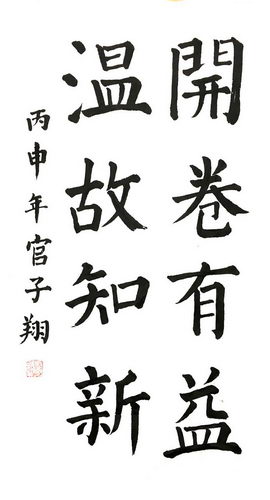 開卷有益
温故知新
丙申年官子翔